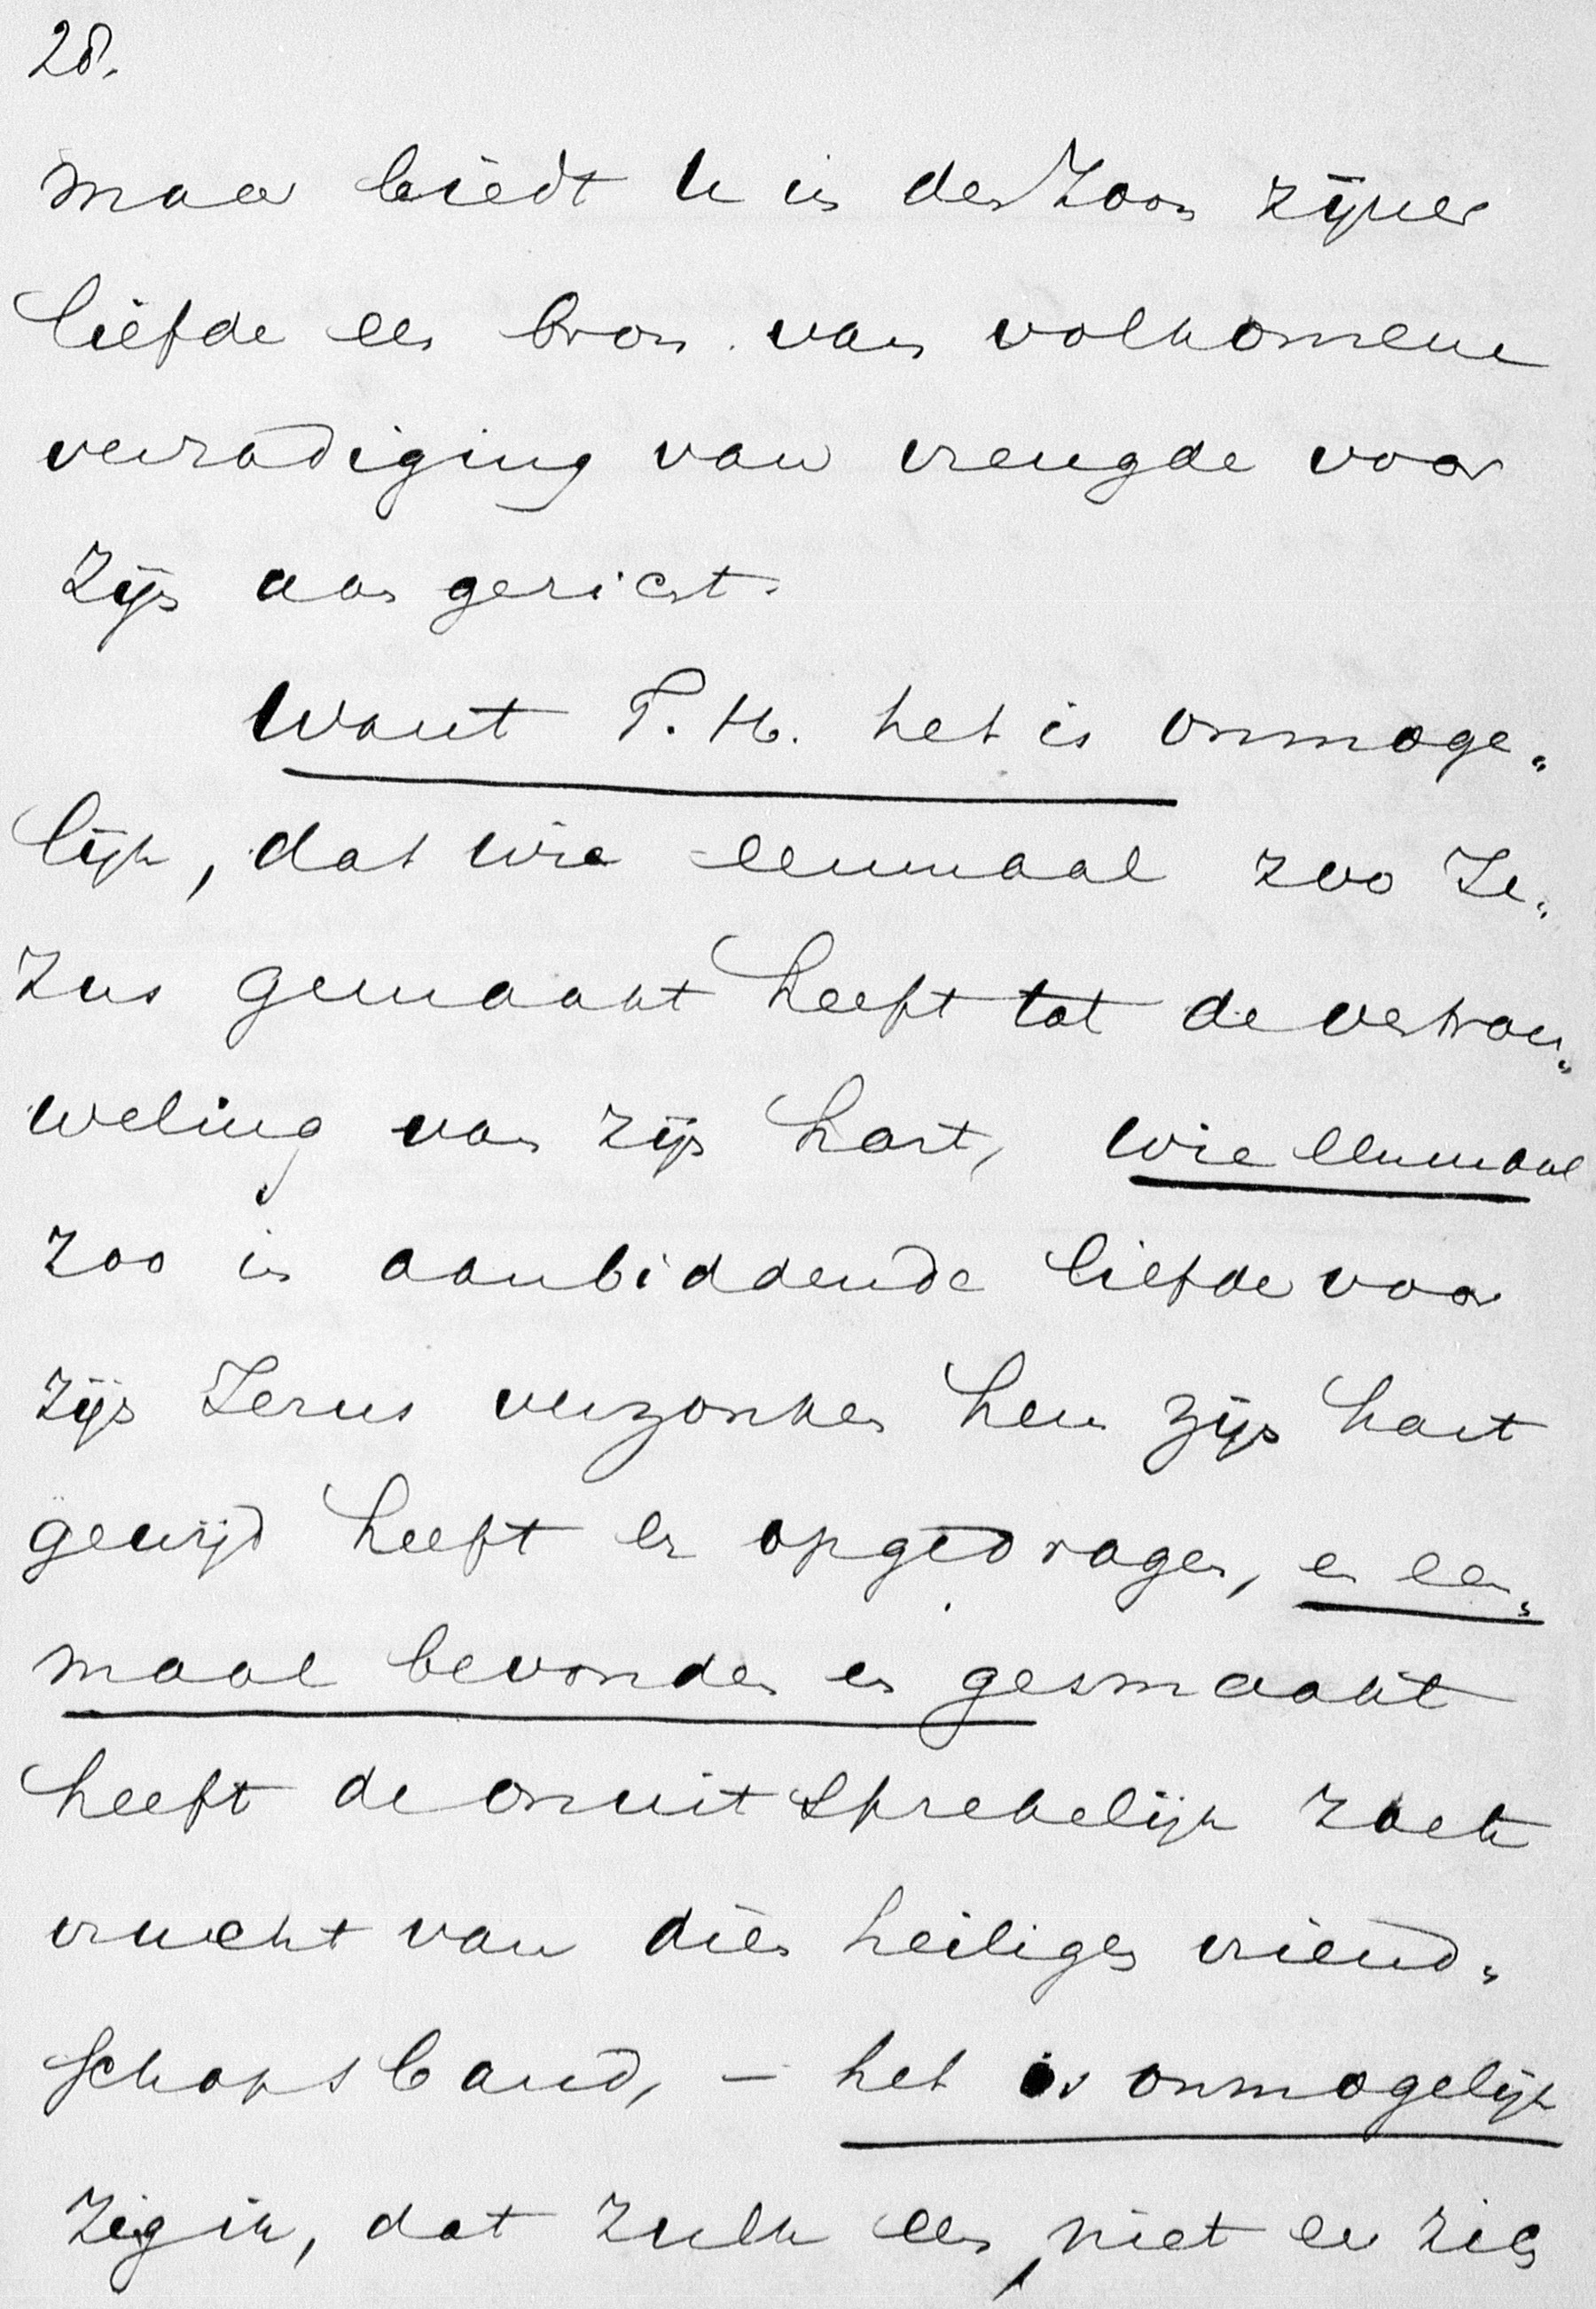 28.
maar biedt U in den Zoon zijner
liefde een bron van volkomene
verzadiging van vreugde voor
Zijn aangezicht.
Want T. H. het is onmoge„
lijk, dat wie eenmaal zoo Je„
zus gemaakt heeft tot de vertrou„
weling van zijn hart, wie eenmaal
zoo in aanbiddende liefde voor
zijn Jezus verzonken hem zijn hart
gewijd heeft en opgedragen, en een„
maal bevonden en gesmaakt
heeft de onuitsprekelijk zoete
vrucht van dien heiligen vriend„
schapsband, – het is onmogelijk
zeg ik, dat zulk een niet er zich